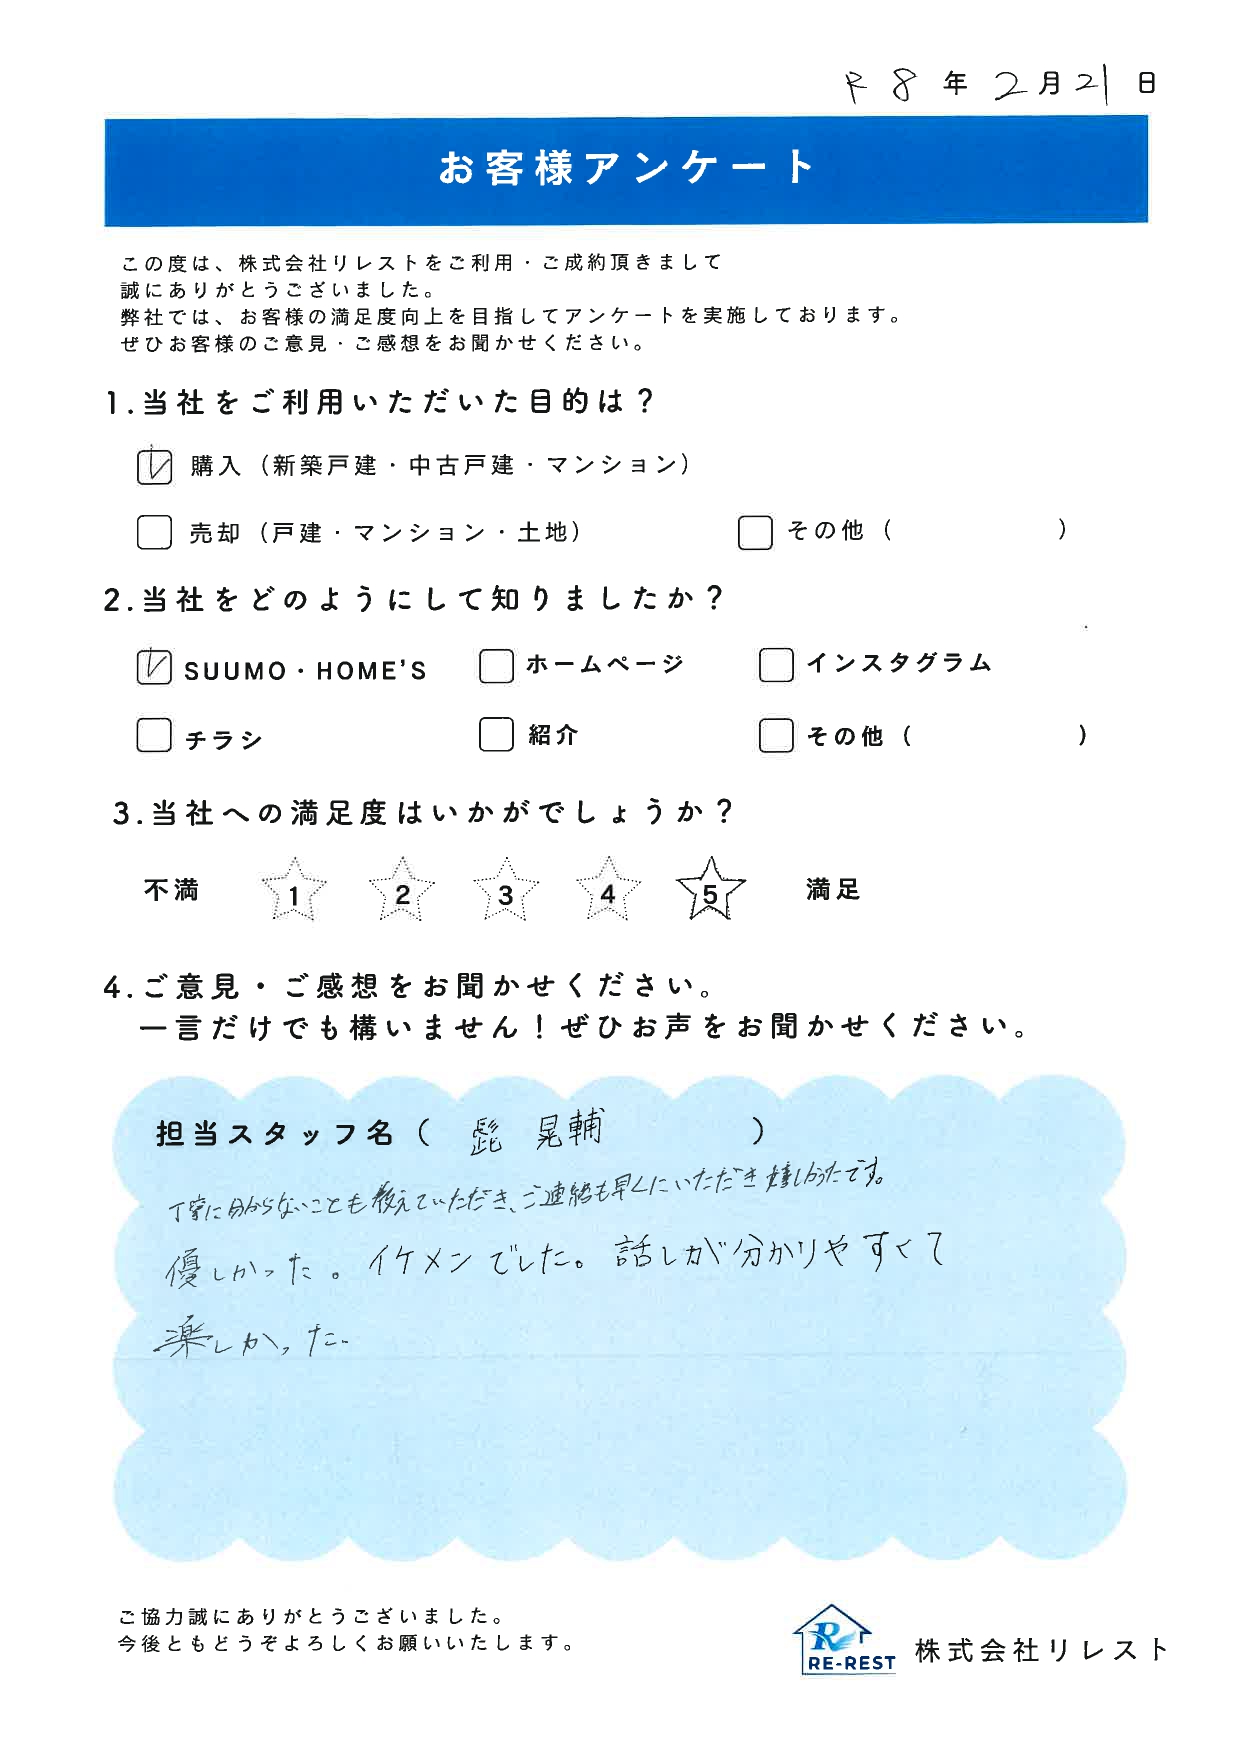 R8年2月21日
お客様アンケート
この度は、株式会社リレストをご利用・ご成約頂きまして
誠にありがとうございました。
弊社では、お客様の満足度向上を目指してアンケートを実施しております。
ぜひお客様のご意見・ご感想をお聞かせください。
1.当社をご利用いただいた目的は？
購入（新築戸建・中古戸建・マンション）
売却（戸建・マンション・土地） その他（ ）
2.当社をどのようにして知りましたか？
SUUMO・HOME'S ホームページ インスタグラム
チラシ 紹介 その他（ ）
3.当社への満足度はいかがでしょうか？
不満 1 2 3 4 5 満足
4.ご意見・ご感想をお聞かせください。
一言だけでも構いません！ぜひお声をお聞かせください。
担当スタッフ名（ 髭 晃輔 ）
丁寧に分からないことも教えていただき、ご連絡も早くにいただき嬉しかったです。
優しかった。イケメンでした。話しが分かりやすくて
楽しかった。
ご協力誠にありがとうございました。
今後ともどうぞよろしくお願いいたします。
R
RE-REST 株式会社リレスト